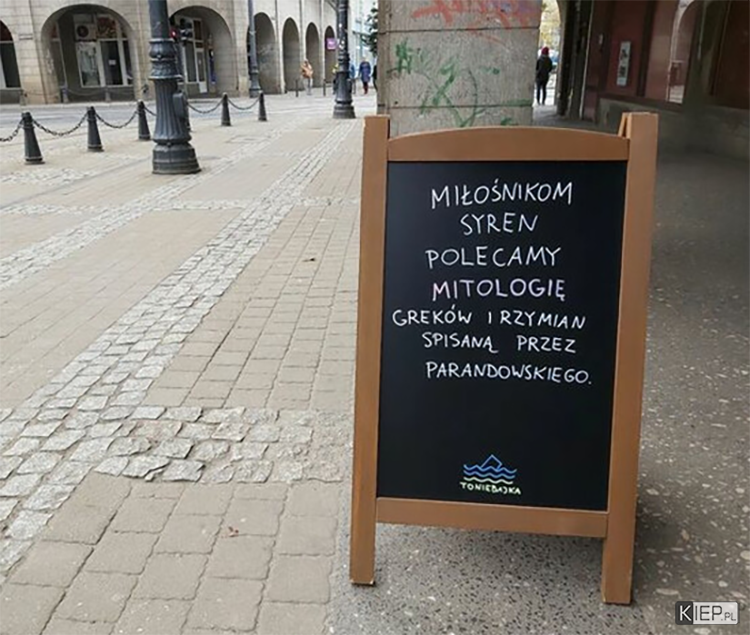 MIŁOŚNIKOM
SYREN
POLECAMY
MITOLOGIĘ
GREKÓW I RZYMIAN
SPISANĄ PRZEZ
PARANDOWSKIEGO.
TONIEBAJKA
KIEP.PL